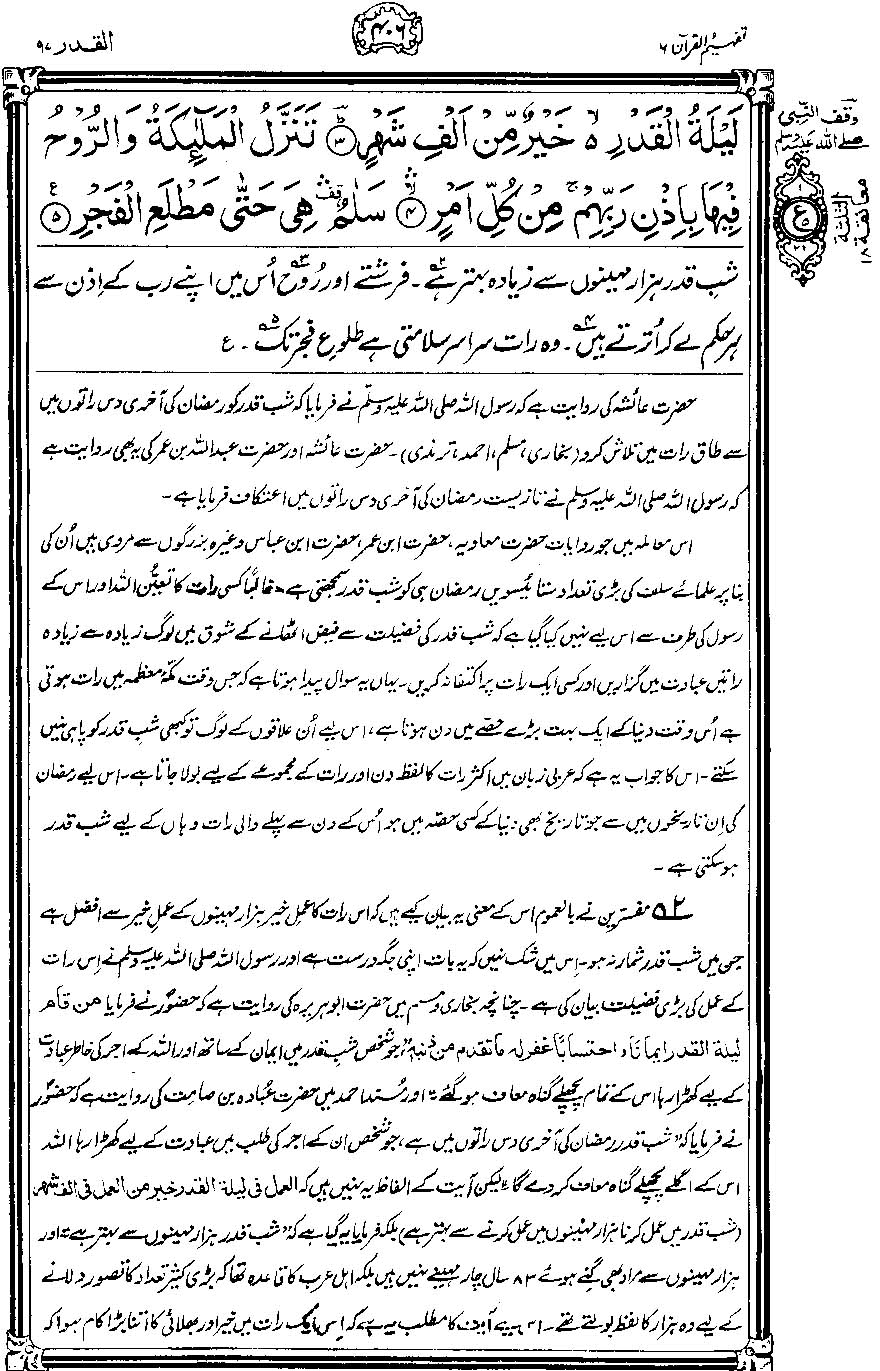 تفہیم القرآن ۶
۴۰۶
القدر ۹۷
لَيْلَةُ الْقَدْرِ ۙ خَيْرٌ مِّنْ اَلْفِ شَهْرٍ ۝۳ تَنَزَّلُ الْمَلٰٓئِكَةُ وَالرُّوْحُ
فِيْهَا بِاِذْنِ رَبِّهِمْ ۚ مِنْ كُلِّ اَمْرٍ ۝۴ سَلٰمٌ ۛ هِىَ حَتّٰى مَطْلَعِ الْفَجْرِ ۝۵
وقف النبی
صلی اللہ علیہ وسلم
معانقۃ ۱۸
الثلثۃ
ع
شبِ قدر ہزار مہینوں سے زیادہ بہتر ہے۲۔ فرشتے اور رُوح۳ اُس میں اپنے رب کے اِذن سے
ہر حکم لے کر اُترتے ہیں۴۔ وہ رات سراسر سلامتی ہے طلوعِ فجر تک۵۔ ع
حضرت عائشہ کی روایت ہے کہ رسول اللہ صلی اللہ علیہ وسلم نے فرمایا کہ شب قدر کو رمضان کی آخری دس راتوں میں
سے طاق رات میں تلاش کرو (بخاری، مسلم، احمد، ترمذی)۔ حضرت عائشہ اور حضرت عبداللہ بن عمر کی یہ بھی روایت ہے
کہ رسول اللہ صلی اللہ علیہ وسلم نے تازیست رمضان کی آخری دس راتوں میں اعتکاف فرمایا ہے۔
اس معاملہ میں جو روایات حضرت معاویہ، حضرت ابن عمر، حضرت ابن عباس وغیرہ بزرگوں سے مروی ہیں اُن کی
بنا پر علمائے سلف کی بڑی تعداد ستائیسویں رمضان ہی کو شبِ قدر سمجھتی ہے۔ غالباً کسی رات کا تعیُّن اللہ اور اس کے
رسول کی طرف سے اس لیے نہیں کیا گیا ہے کہ شب قدر کی فضیلت سے فیض اٹھانے کے شوق میں لوگ زیادہ سے زیادہ
راتیں عبادت میں گزاریں اور کسی ایک رات پر اکتفا نہ کریں۔ یہاں یہ سوال پیدا ہوتا ہے کہ جس وقت مکۂ معظمہ میں رات ہوتی
ہے اُس وقت دنیا کے ایک بہت بڑے حصے میں دن ہوتا ہے، اس لیے اُن علاقوں کے لوگ تو کبھی شبِ قدر کو پا ہی نہیں
سکتے۔ اس کا جواب یہ ہے کہ عربی زبان میں اکثر رات کا لفظ دن اور رات کے مجموعے کے لیے بولا جاتا ہے۔ اس لیے رمضان
کی اِن تاریخوں میں سے جو تاریخ بھی دنیا کے کسی حصہ میں ہو اُس کے دن سے پہلے والی رات وہاں کے لیے شب قدر
ہو سکتی ہے۔
۲ مفسّرین نے بالعموم اس کے معنی یہ بیان کیے ہیں کہ اس رات کا عملِ خیر ہزار مہینوں کے عملِ خیر سے افضل ہے
جن میں شب قدر شمار نہ ہو۔ اِس میں شک نہیں کہ یہ بات اپنی جگہ درست ہے اور رسول اللہ صلی اللہ علیہ وسلم نے اِس رات
کے عمل کی بڑی فضیلت بیان کی ہے۔ چنانچہ بخاری و مسلم میں حضرت ابوہریرہ کی روایت ہے کہ حضورؐ نے فرمایا من قام
لیلة القدر ایمانًا و احتسابًا غفر له ما تقدم من ذنبه، "جو شخص شبِ قدر میں ایمان کے ساتھ اور اللہ کے اجر کی خاطر عبادت
کے لیے کھڑا رہا اس کے تمام پچھلے گناہ معاف ہو گئے" اور مُسند احمد میں حضرت عُبادہ بن صامِت کی روایت ہے کہ حضورؐ
نے فرمایا کہ "شب قدر رمضان کی آخری دس راتوں میں ہے، جو شخص ان کے اجر کی طلب میں عبادت کے لیے کھڑا رہا اللہ
اس کے اگلے پچھلے گناہ معاف کر دے گا" لیکن آیت کے الفاظ یہ نہیں ہیں کہ العمل فی لیلة القدر خیر من العمل فی الف شهر
(شب قدر میں عمل کرنا ہزار مہینوں میں عمل کرنے سے بہتر ہے) بلکہ فرمایا یہ گیا ہے کہ "شب قدر ہزار مہینوں سے بہتر ہے" اور
ہزار مہینوں سے مراد بھی گنے ہوئے ۸۳ سال چار مہینے نہیں ہیں بلکہ اہل عرب کا قاعدہ تھا کہ بڑی کثیر تعداد کا تصور دلانے
کے لیے وہ ہزار کا لفظ بولتے تھے۔ اس لیے آیت کا مطلب یہ ہے کہ اِس ایک رات میں خیر اور بھلائی کا اتنا بڑا کام ہوا کہ